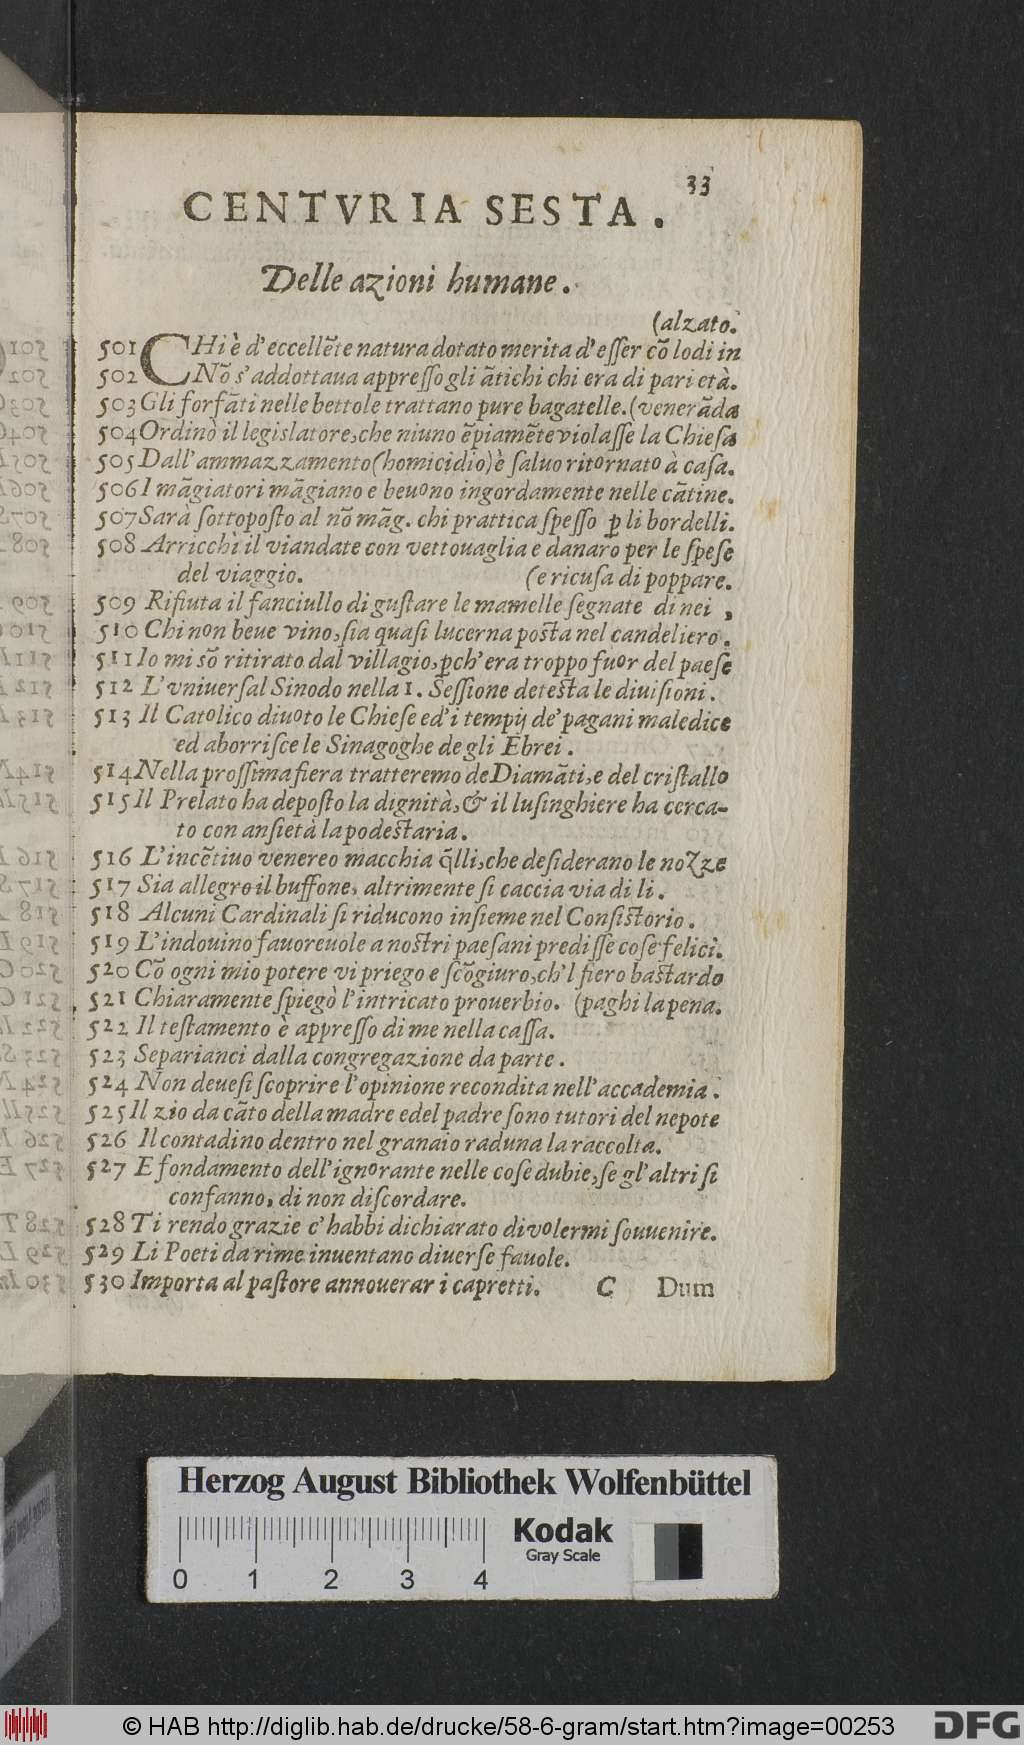 33
CENTVRIA SESTA.
Delle azioni humane.
(alzato.
501 CHi è d'eccellẽte natura dotato merita d'eſſer cõ lodi in
502 Nõ s'addottaua appreſſo gli ãtichi chi era di pari età.
503 Gli forfãti nelle bettole trattano pure bagatelle. (venerãda
504 Ordinò il legislatore, che niuno ẽpiamẽte violaſſe la Chieſa
505 Dall'ammazzamento (homicidio) è ſaluo ritornato à caſa.
506 I mãgiatori mãgiano e beuono ingordamente nelle cãtine.
507 Sarà ſottopoſto al nõ mãg. chi prattica ſpeſſo ꝑ li bordelli.
508 Arricchì il viandate con vettouaglia e danaro per le ſpeſe
del viaggio. (e ricuſa di poppare.
509 Rifiuta il fanciullo di guſtare le mamelle ſegnate di nei,
510 Chi non beue vino, ſia quaſi lucerna poſta nel candeliero.
511 Io mi sõ ritirato dal villagio, ꝑch'era troppo fuor del paeſe
512 L'vniuerſal Sinodo nella 1. Seſſione deteſta le diuiſioni.
513 Il Catolico diuoto le Chieſe ed'i tempij de' pagani maledice
ed aborriſce le Sinagoghe de gli Ebrei.
514 Nella proſſima fiera tratteremo de Diamãti, e del criſtallo
515 Il Prelato ha depoſto la dignità, & il luſinghiere ha cerca-
to con anſietà la podeſtaria.
516 L'incẽtiuo venereo macchia q̃lli, che deſiderano le nozze
517 Sia allegro il buffone, altrimente ſi caccia via di li.
518 Alcuni Cardinali ſi riducono inſieme nel Conſiſtorio.
519 L'indouino fauoreuole a noſtri paeſani prediſſe coſe felici.
520 Cõ ogni mio potere vi priego e ſcõgiuro, ch'l fiero baſtardo
521 Chiaramente ſpiegò l'intricato prouerbio. (paghi la pena.
522 Il teſtamento è appreſſo di me nella caſſa.
523 Separianci dalla congregazione da parte.
524 Non deueſi ſcoprire l'opinione recondita nell'accademia.
525 Il zio da cãto della madre e del padre ſono tutori del nepote
526 Il contadino dentro nel granaio raduna la raccolta.
527 E fondamento dell'ignorante nelle coſe dubie, ſe gl'altri ſi
confanno, di non diſcordare.
528 Ti rendo grazie c'habbi dichiarato di volermi ſouuenire.
529 Li Poeti da rime inuentano diuerſe fauole.
530 Importa al paſtore annouerar i capretti. C Dum
Herzog August Bibliothek Wolfenbüttel
Kodak
Gray Scale
0 1 2 3 4
© HAB http://diglib.hab.de/drucke/58-6-gram/start.htm?image=00253
DFG